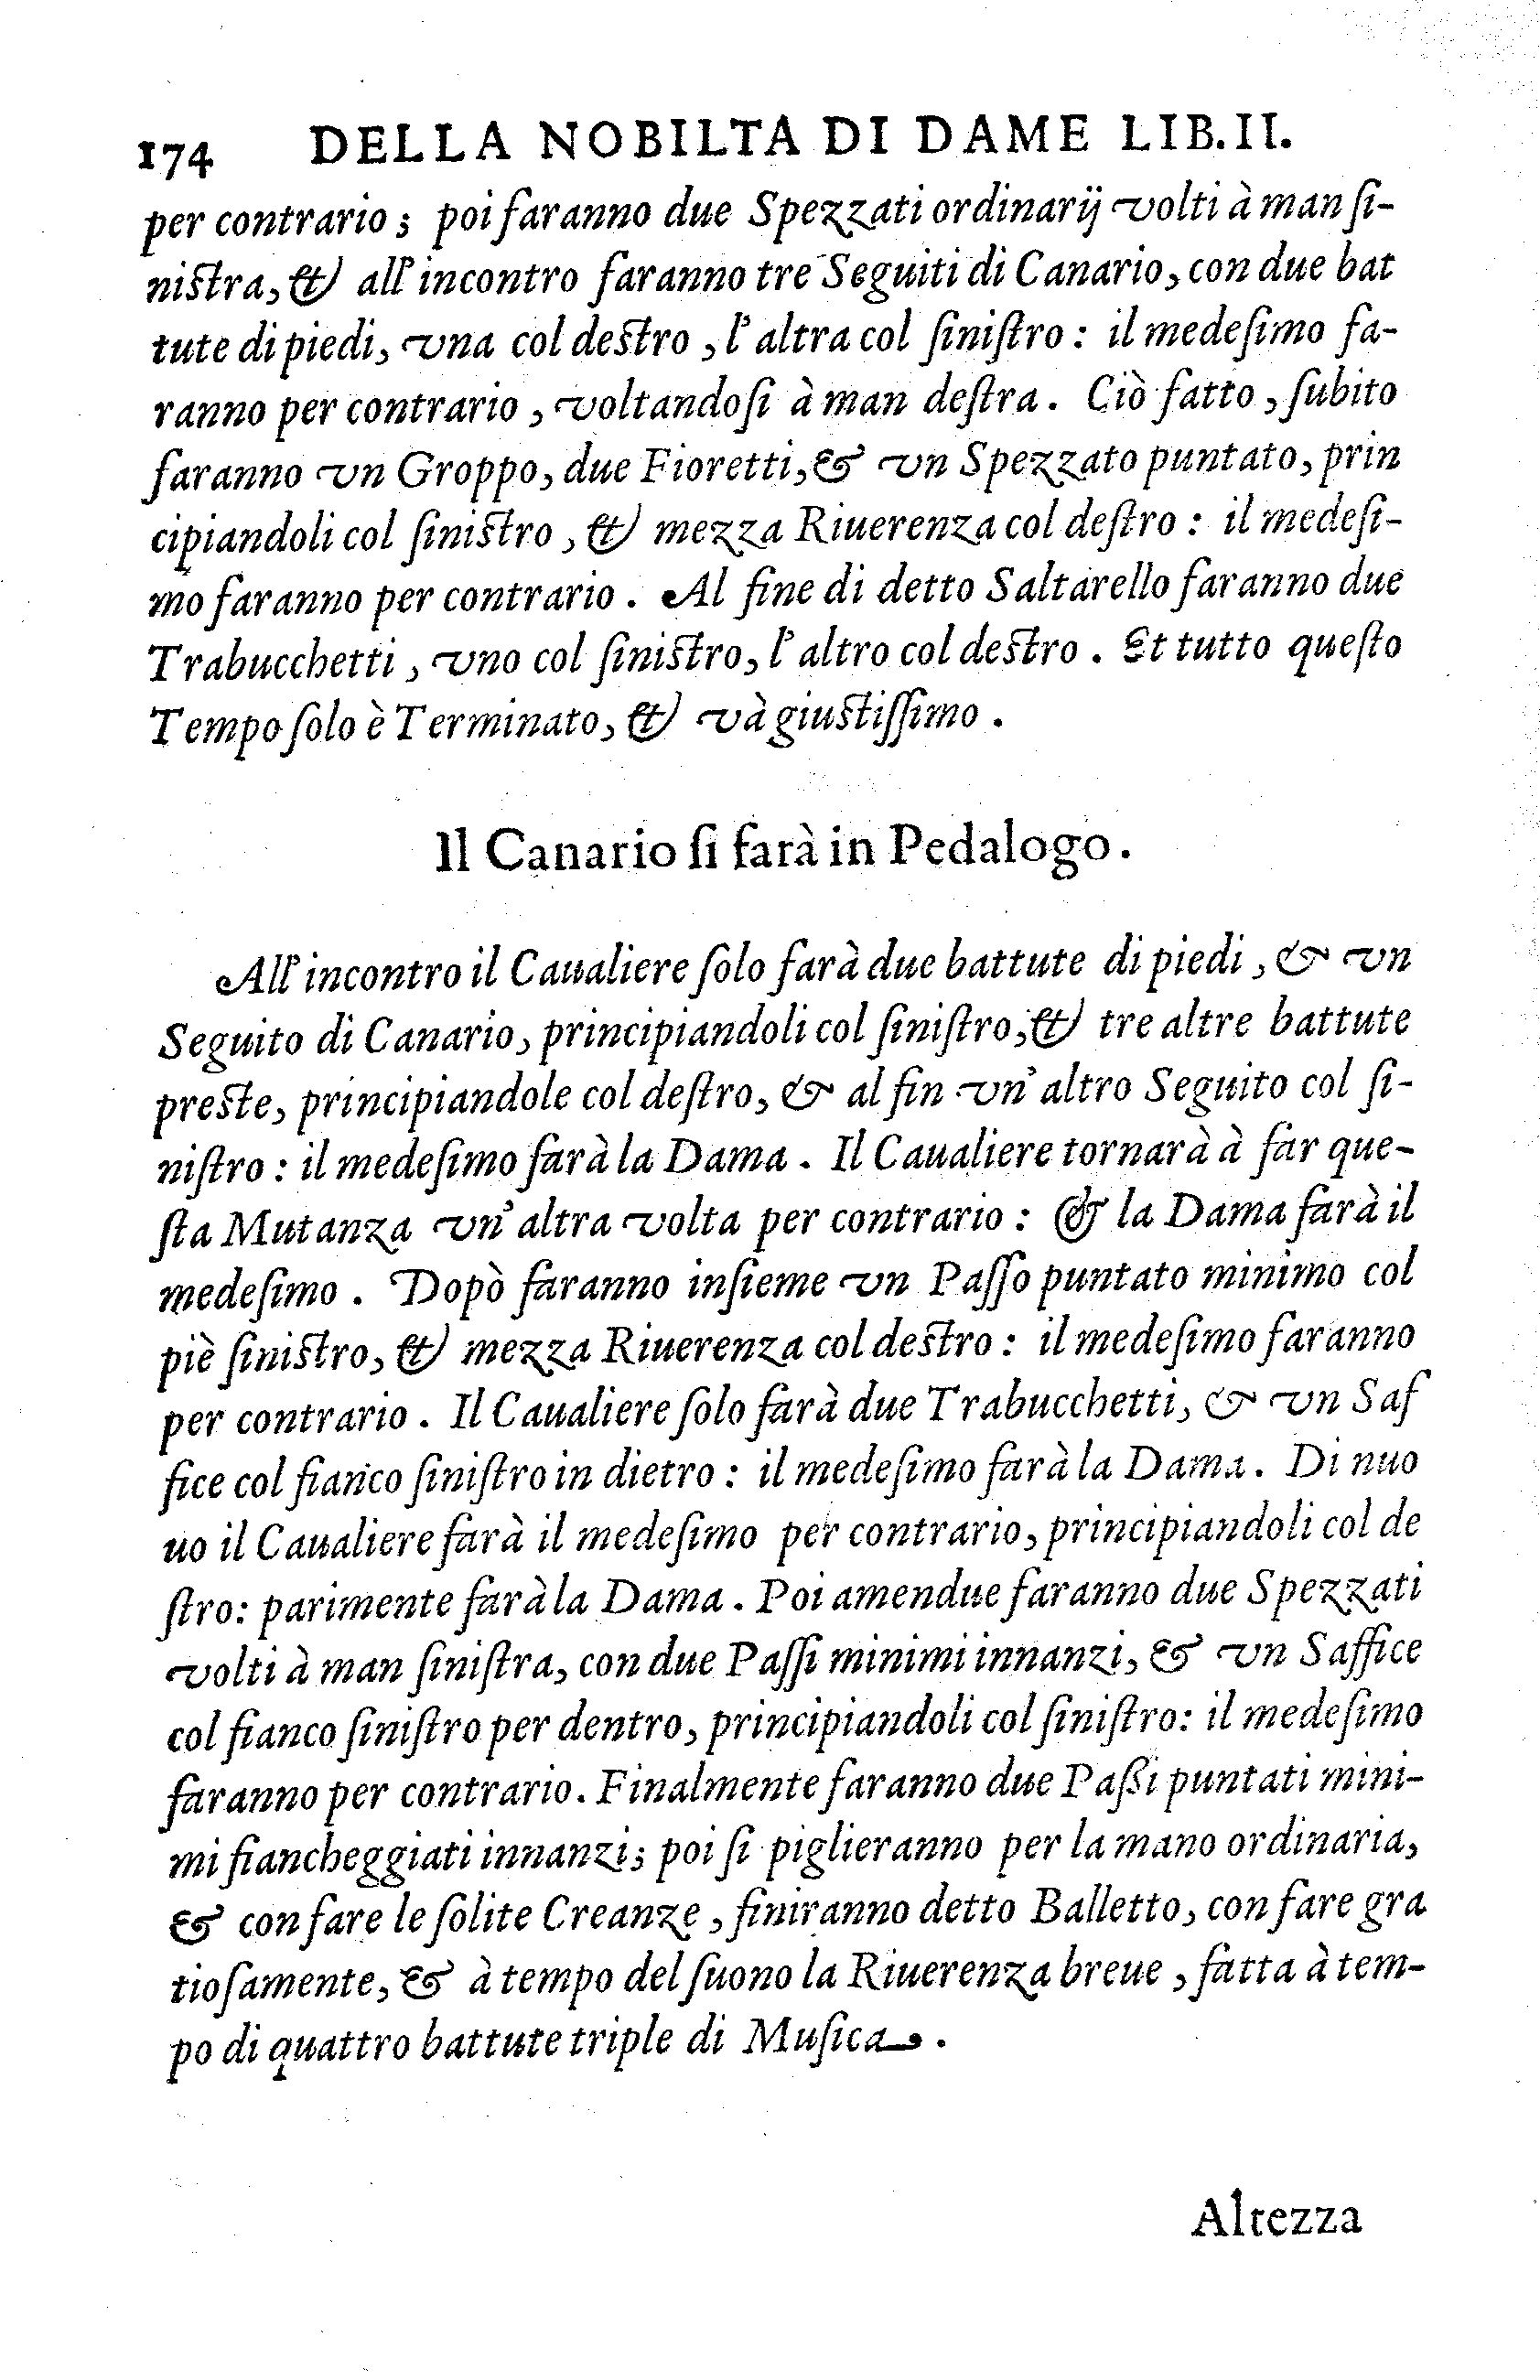 174 DELLA NOBILTA DI DAME LIB.II.
per contrario; poi faranno due Spezzati ordinarij volti à man ſi-
niſtra, & all'incontro faranno tre Seguiti di Canario, con due bat
tute di piedi, vna col deſtro, l'altra col ſiniſtro: il medeſimo fa-
ranno per contrario, voltandoſi à man deſtra. Ciò fatto, ſubito
faranno vn Groppo, due Fioretti, & vn Spezzato puntato, prin
cipiandoli col ſiniſtro, & mezza Riuerenza col deſtro: il medeſi-
mo faranno per contrario. Al fine di detto Saltarello faranno due
Trabucchetti, vno col ſiniſtro, l'altro col deſtro. Et tutto queſto
Tempo ſolo è Terminato, & và giuſtiſſimo.
Il Canario ſi farà in Pedalogo.
All'incontro il Caualiere ſolo farà due battute di piedi, & vn
Seguito di Canario, principiandoli col ſiniſtro, & tre altre battute
preſte, principiandole col deſtro, & al fin vn'altro Seguito col ſi-
niſtro: il medeſimo farà la Dama. Il Caualiere tornarà à far que-
ſta Mutanza vn'altra volta per contrario: & la Dama farà il
medeſimo. Dopò faranno inſieme vn Paſſo puntato minimo col
piè ſiniſtro, & mezza Riuerenza col deſtro: il medeſimo faranno
per contrario. Il Caualiere ſolo farà due Trabucchetti, & vn Saf
fice col fianco ſiniſtro in dietro: il medeſimo farà la Dama. Di nuo
uo il Caualiere farà il medeſimo per contrario, principiandoli col de
ſtro: parimente farà la Dama. Poi amendue faranno due Spezzati
volti à man ſiniſtra, con due Paſſi minimi innanzi, & vn Saffice
col fianco ſiniſtro per dentro, principiandoli col ſiniſtro: il medeſimo
faranno per contrario. Finalmente faranno due Paßi puntati mini-
mi fiancheggiati innanzi; poi ſi piglieranno per la mano ordinaria,
& con fare le ſolite Creanze, finiranno detto Balletto, con fare gra
tioſamente, & à tempo del ſuono la Riuerenza breue, fatta à tem-
po di quattro battute triple di Muſica.
Altezza